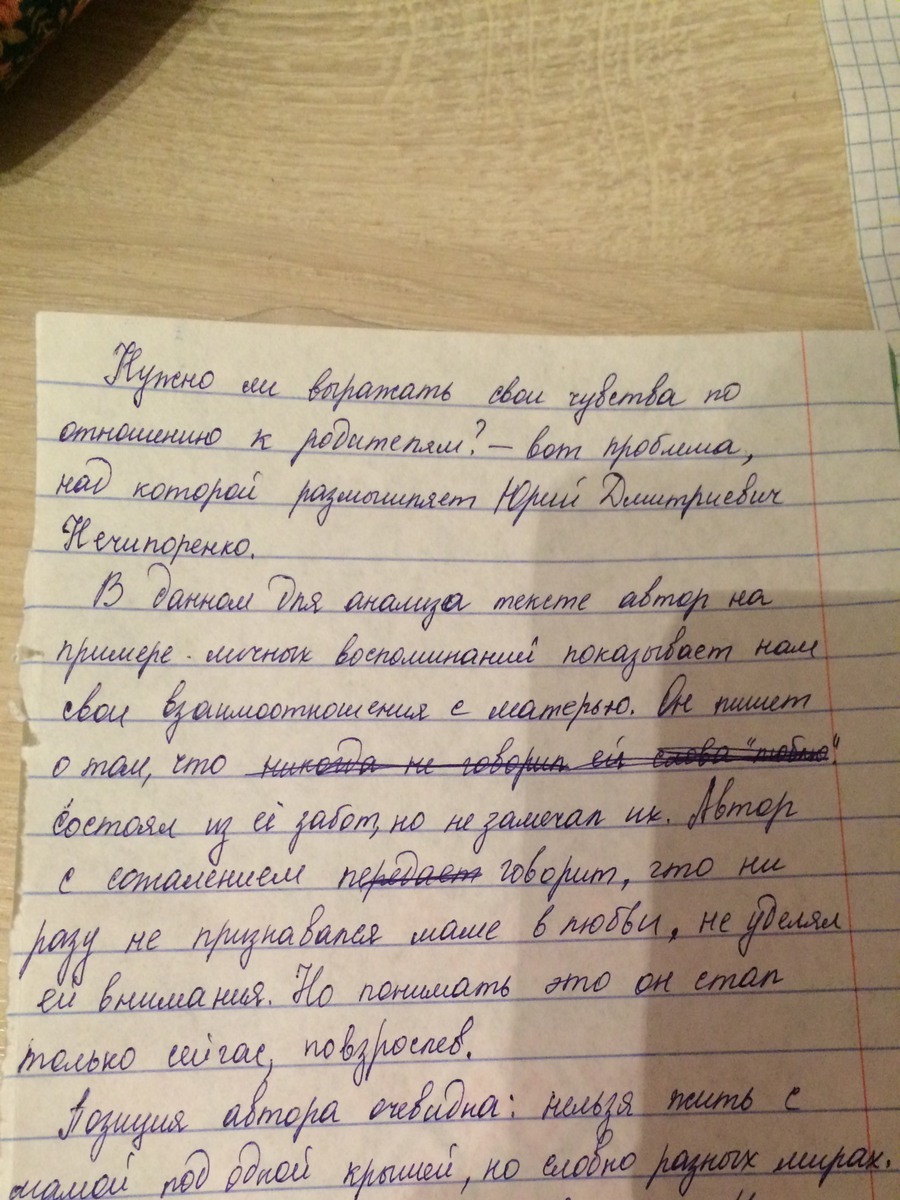 Нужно ли выражать свои чувства по
отношению к родителям? – вот проблема,
над которой размышляет Юрий Дмитриевич
Нечипоренко.
В данном для анализа тексте автор на
примере личных воспоминаний показывает нам
свои взаимоотношения с матерью. Он пишет
о том, что никогда не говорил ей слова "люблю".
состоял из её забот, но не замечал их. Автор
с сожалением передает говорит, что ни
разу не признавался маме в любви, не уделял
ей внимания. Но понимать это он стал
только сейчас, повзрослев.
Позиция автора очевидна: нельзя жить с
мамой под одной крышей, но словно разных мирах.